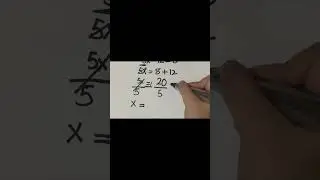 5x = 8 + 12
5x/5 = 20/5
x =